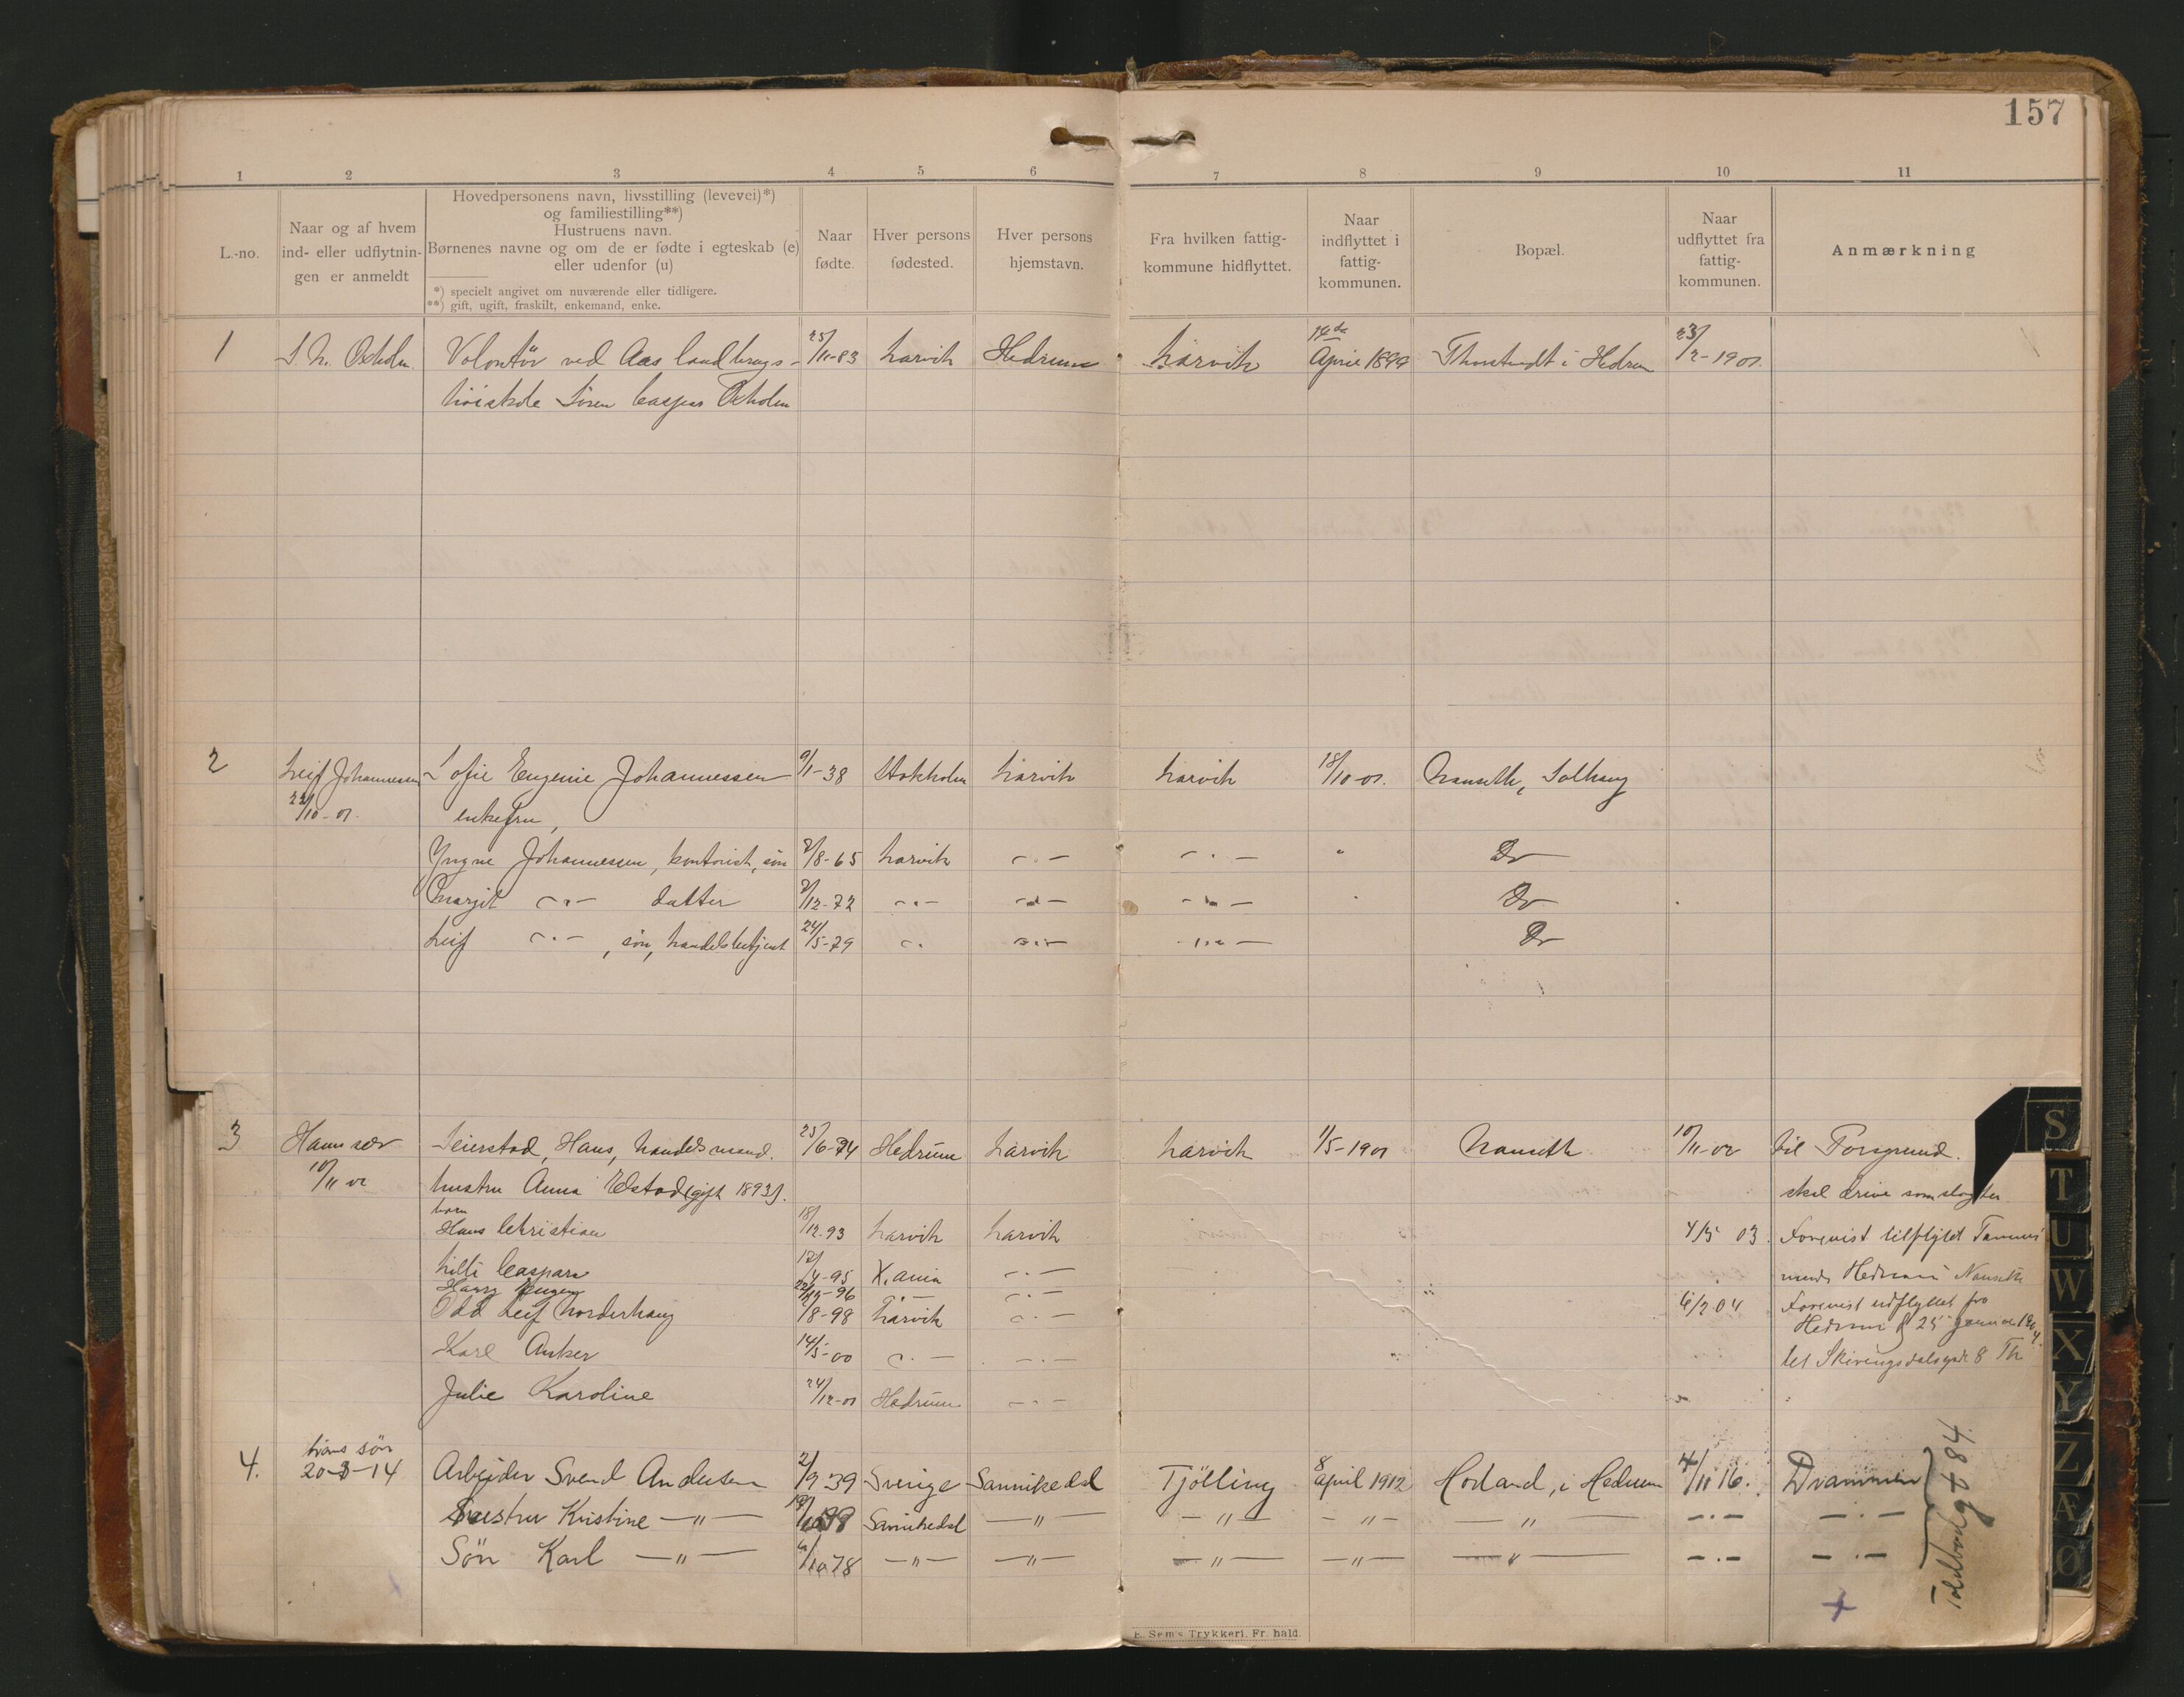 157
1 2 3 4 5 6 7 8 9 10 11
L.-no.
Naar og af hvem
ind- eller udflytnin-
gen er anmeldt
Hovedpersonens navn, livsstilling (levevei)*)
og familiestilling**)
Hustruens navn.
Børnenes navne og om de er fødte i egteskab (e)
eller udenfor (u)
*) specielt angivet om nuværende eller tidligere.
**) gift, ugift, fraskilt, enkemand, enke.
Naar
fødte.
Hver persons
fødested.
Hver persons
hjemstavn.
Fra hvilken fattig-
kommune hidflyttet.
Naar
indflyttet i
fattig-
kommunen.
Bopæl.
Naar
udflyttet fra
fattig-
kommunen.
Anmærkning
1 Volontör ved Aas landbrugs- 25/11-83 Larvik Hedrum Larvik 14de April 1899 i Hedrum 23/2-1901.
höiskole Sören Caspar
2 Leif Johannessen Sofie Eugenie Johannessen 9/1-38 Stokholm Larvik Larvik 18/10-01. Nanseth, Solhaug
22/10-01. enkefru,
Yngve Johannessen, kontorist, sön 2/8-65 Larvik -"- -"- " Do
Margit -"- datter 2/12-72 -"- -"- -"- Do
Leif -"-, sön, handelsbetjent 24/5-79 -"- -"- -"- Do
3 Ham selv Seierstad, Hans, handelsmand. 25/6-74 Hedrum Larvik Larvik 1/5-1901 Nanseth 10/11-02 til Porsgrund.
10/11 02 hustru Anna (gift 1893). skal drive som slagter
born
Hans Christian 18/12-93 Larvik Larvik 4/5 03. Forevist tilflyttet
Lilli Caspara 12/4-95 X.ania -"- Hedrum Nanseth
Harry Eugen -96 -"-
Odd Leif Norderhaug /8-98 Larvik -"- 6/2 04 Forevist udflyttet fra
Hedrum d 25 januar 1904
Karl Anker 14/5-00 -"- -"- til Skiringsdalsgade 8 Th
Julie Karoline 24/12-01 Hedrum -"-
4. hans sön
20-3-14 Arbeider Svend Andersen 2/9 39 Sverige Sannikedal Tjölling 8 april 1912 Hovland, i Hedrum 4/11 16. Drammen
Hustru Kristine -"- Sannikedal -"- -"- -"- -"- -"- -"-
Sön Karl -"- 78 -"- -"- -"- -"- -"- -"- -"-
Toldbodg 84.
E. Sem's Trykkeri, Fr.hald.
S
T
U
W
X
Y
Z
Æ
Ø